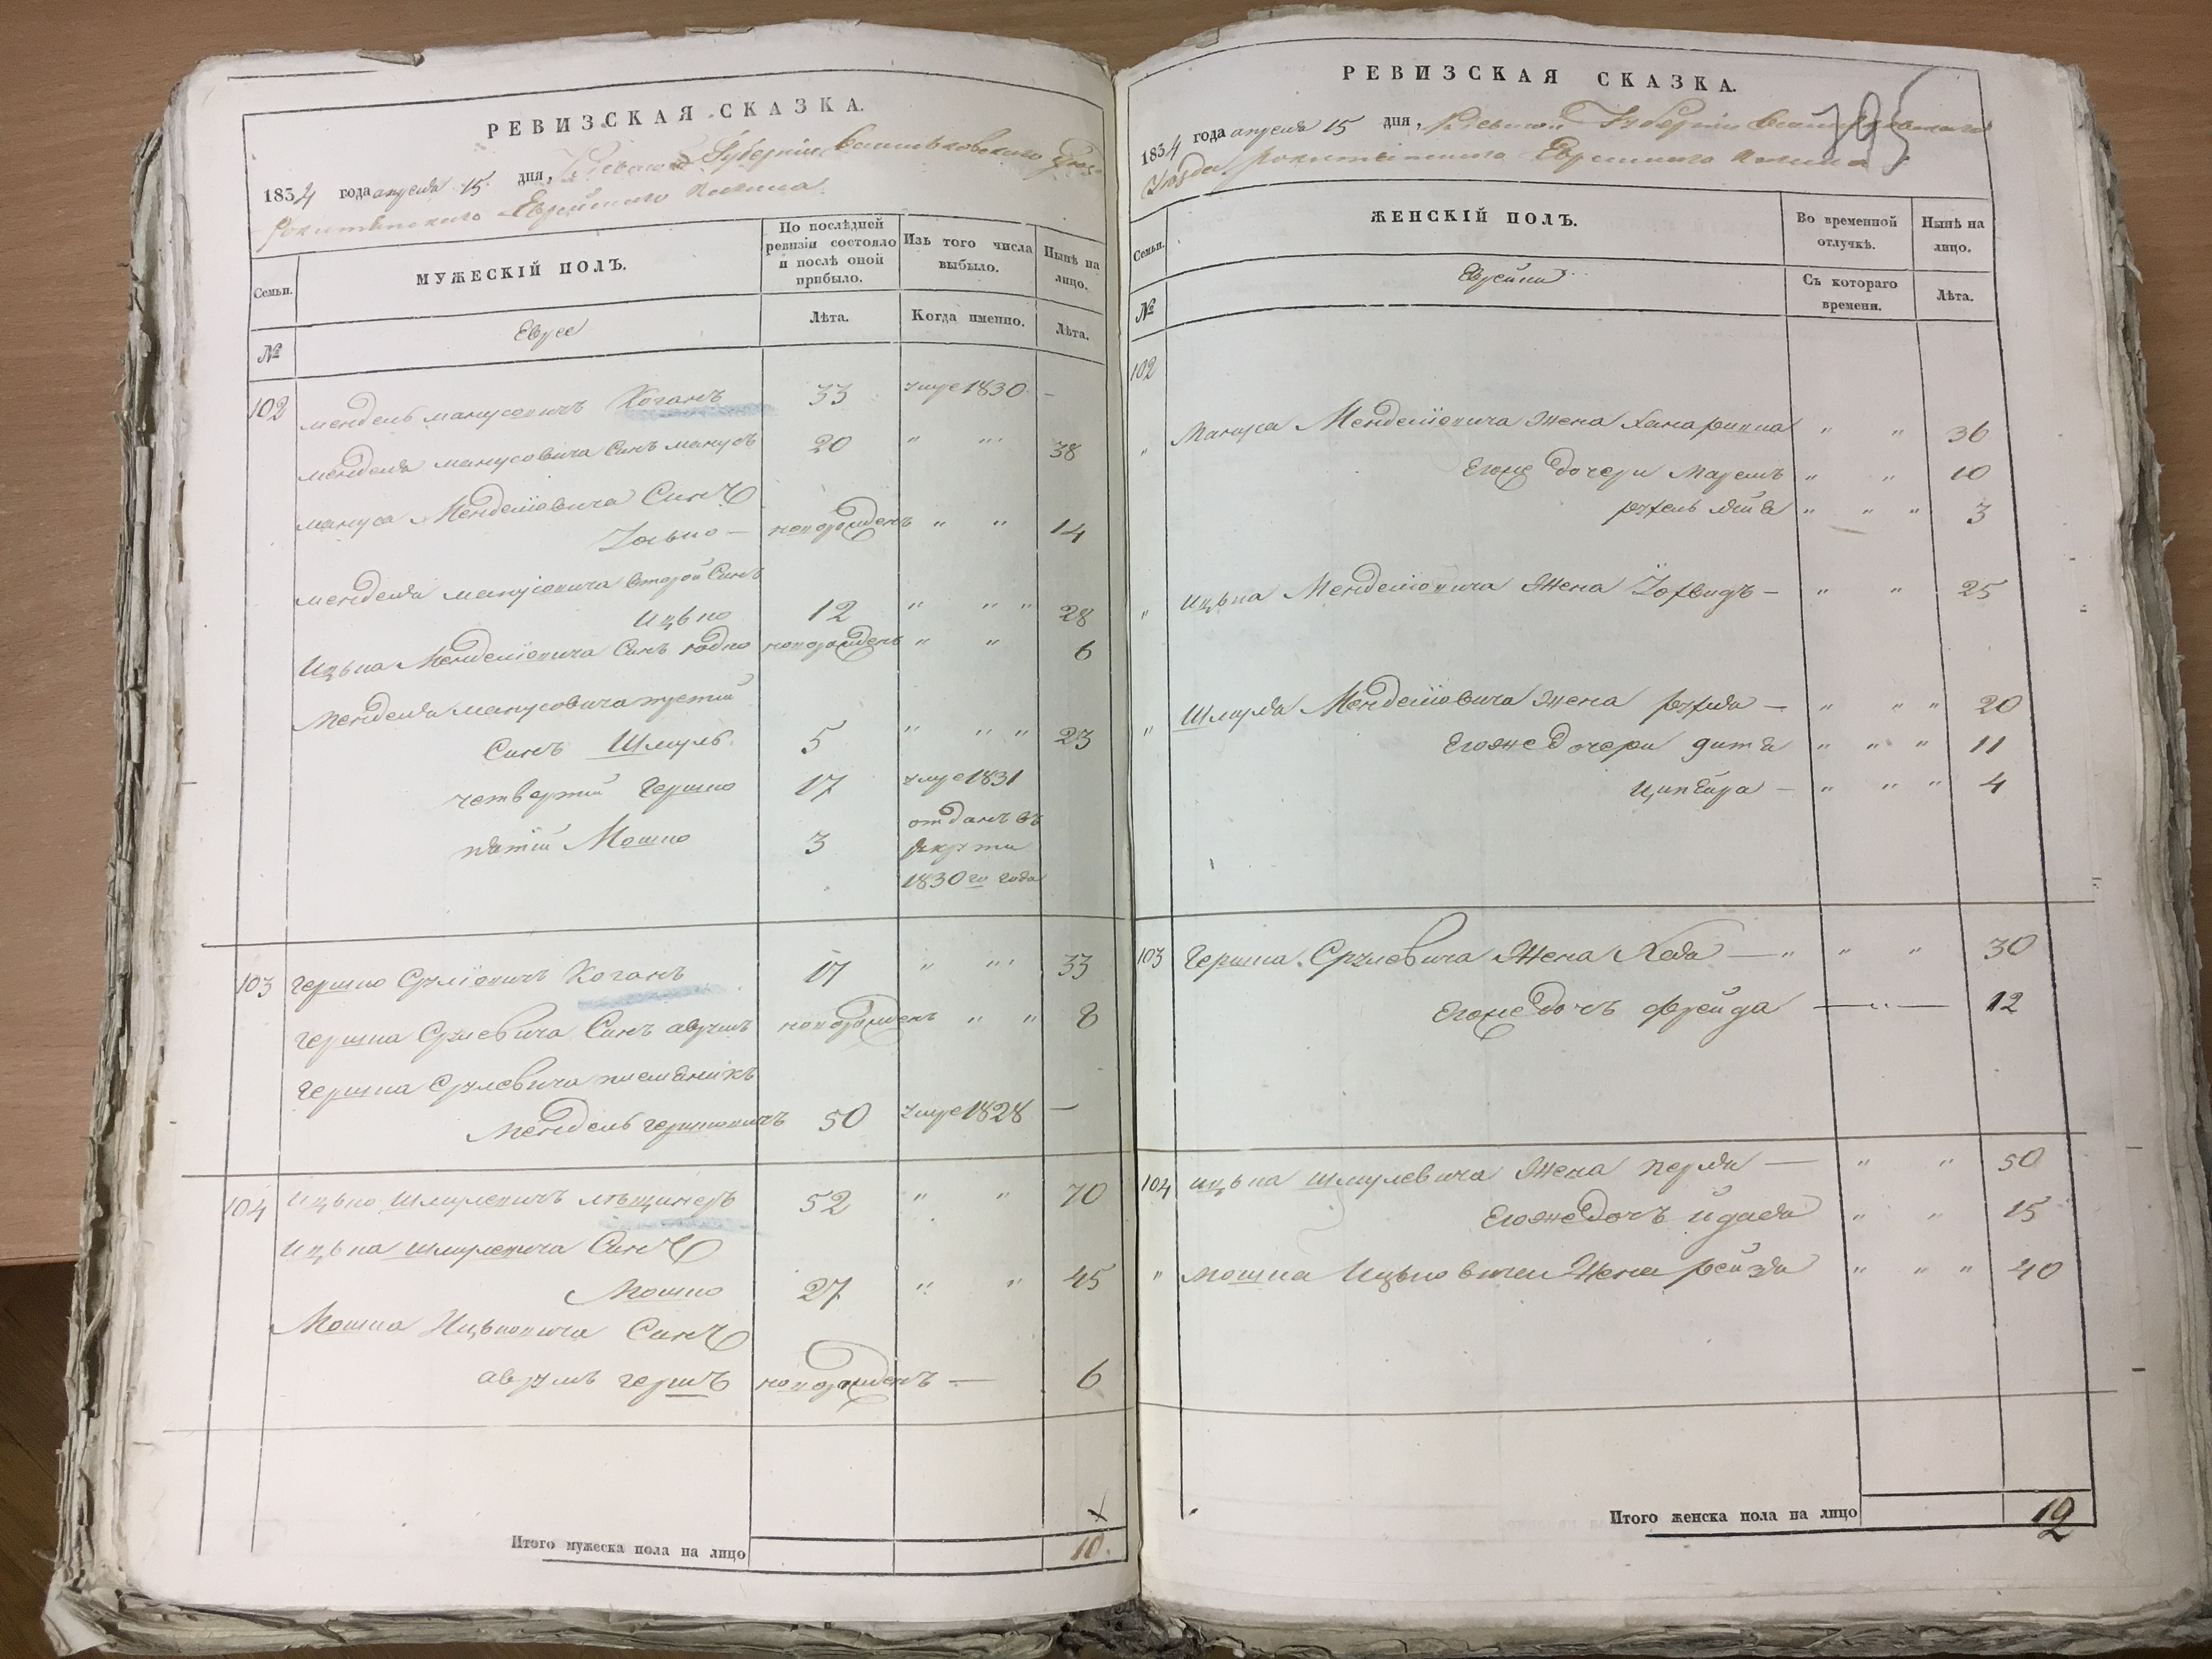 РЕВИЗСКАЯ СКАЗКА.
1834 года апреля 15 дня, Киевской Губернии Васильковского Уезда
Рокитянского Еврейского
Семьи.
МУЖЕСКІЙ ПОЛЪ.
По послѣдней ревизіи состояло и послѣ оной прибыло.
Изъ того числа выбыло.
Нынѣ на лицо.
№
Евреи
Лѣта.
Когда именно.
Лѣта.
102 Мендель Манусовичъ Коганъ 33 умре 1830 -
Менделя Манусовича Синъ Манусъ 20 " " 38
Мануса Менделіовича Синъ
новорожденъ " " 14
Менделя Манусіовича второй Синъ
Ицько 12 " " " 28
Ицька Менделіовича Синъ Юдко новорожденъ " " 6
Менделя Манусовича третий
Синъ Шмуль 5 " " " 23
четвертий Гершко 17 умре 1831
пятий Мошко 3 отданъ въ
рекруты
1830го года
103 Гершко Срулiовичъ Коганъ 17 " " 33
Гершка Срулевича Синъ Аврумъ новорожденъ " " 8
Гершка Срулевича племеникъ
Мендель Гершковичъ 50 умре 1828 —
104 Ицько Шмулевичъ 52 " " 70
Ицька Шмулевича Синъ
Мошко 27 " " 45
Мошка Ицьковича Синъ
Аврумъ Гершъ новорожденъ — 6
Итого мужеска пола на лицо 10.
РЕВИЗСКАЯ СКАЗКА.
795
1834 года апреля 15 дня, Киевской Губернии Васильковского
Уезда Рокитянского Еврейского
Семьи.
ЖЕНСКІЙ ПОЛЪ.
Во временной отлучкѣ.
Нынѣ на лицо.
№
Еврейки
Съ котораго времени.
Лѣта.
102
" Мануса Менделіовича Жена " " 36
Егоже Дочери " " 10
" " " 3
" Ицька Менделіовича Жена " " 25
" Шмуля Менделіовича Жена Рухля — " " " 20
Егоже Дочери " " " 11
— " " " 4
103 Гершка Срулевича Жена — " " " 30
Егоже Дочъ Фрейда — " — 12
104 Ицька Шмулевича Жена Перля — " " 50
Егоже Дочъ " " 15
" Мошка Ицьковича Жена Рейзя " " " 40
Итого женска пола на лицо 12